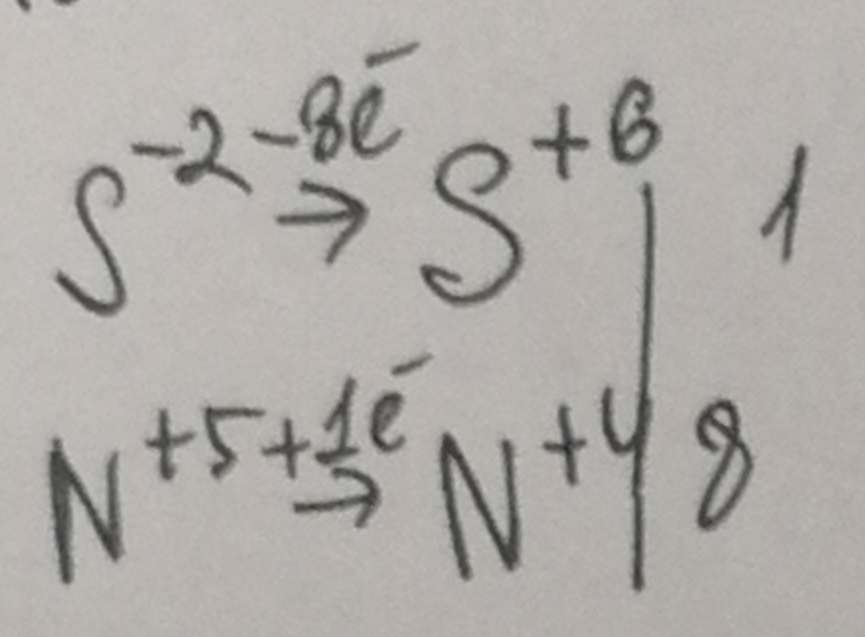 S⁻² -8ē → S⁺⁶ | 1
N⁺⁵ +1ē → N⁺⁴ | 8